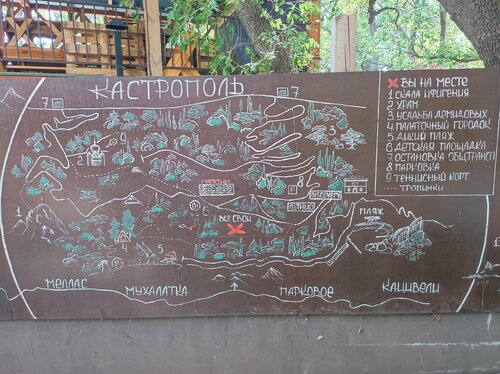 КАСТРОПОЛЬ
7
7
Х ВЫ НА МЕСТЕ
1 СКАЛА ИФИГЕНИЯ
2 ХРАМ
3 УСАДЬБА ДЕМИДОВЫХ
4 ПАЛАТОЧНЫЙ ГОРОДОК
5 ДИКИЙ ПЛЯЖ
6 ДЕТСКАЯ ПЛОЩАДКА
7 ОСТАНОВКА ОБЩТРАНСП
8 ПАРКОВКА
9 ТЕННИСНЫЙ КОРТ
ТРОПИНКИ
9
3
2
МАГАЗИН
8
1
ВСЕ СВОИ
ПЛЯЖ
4
5
МЕЛЛАС
МУХАЛАТКА
ПАРКОВОЕ
КАЦИВЕЛИ